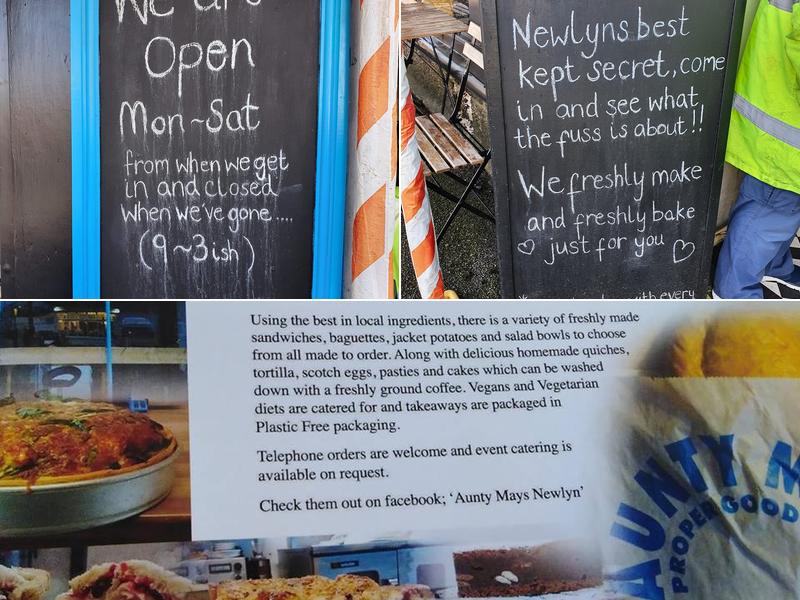 We are
Open
Mon~Sat
from when we get
in and closed
when we've gone....
(9~3ish)
Newlyns best
kept secret, come
in and see what
the fuss is about!!
We freshly make
and freshly bake
♡ just for you ♡
with every
Using the best in local ingredients, there is a variety of freshly made
sandwiches, baguettes, jacket potatoes and salad bowls to choose
from all made to order. Along with delicious homemade quiches,
tortilla, scotch eggs, pasties and cakes which can be washed
down with a freshly ground coffee. Vegans and Vegetarian
diets are catered for and takeaways are packaged in
Plastic Free packaging.
Telephone orders are welcome and event catering is
available on request.
Check them out on facebook; ‘Aunty Mays Newlyn’
AUNTY M
PROPER GOOD